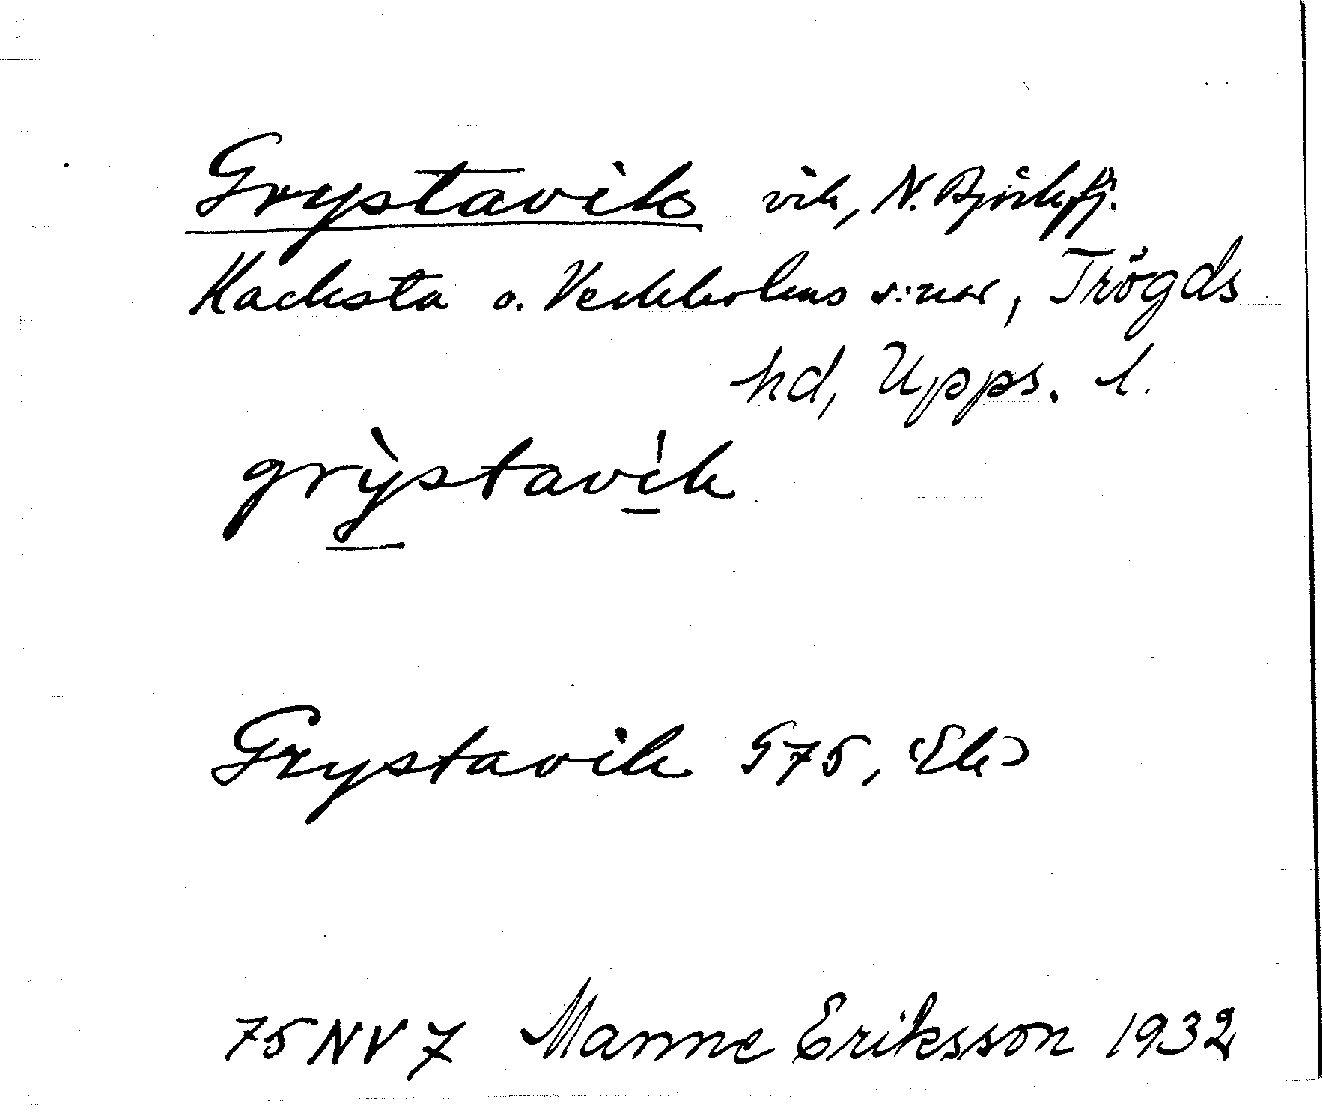 Grystavik vik, N. Björkfj.
Kacksta o. Veckholms s:nar, Trögds
hd, Upps. l.
grỳstavík
Grystavik G75, (Ek)
75 NV 7 Manne Eriksson 1932